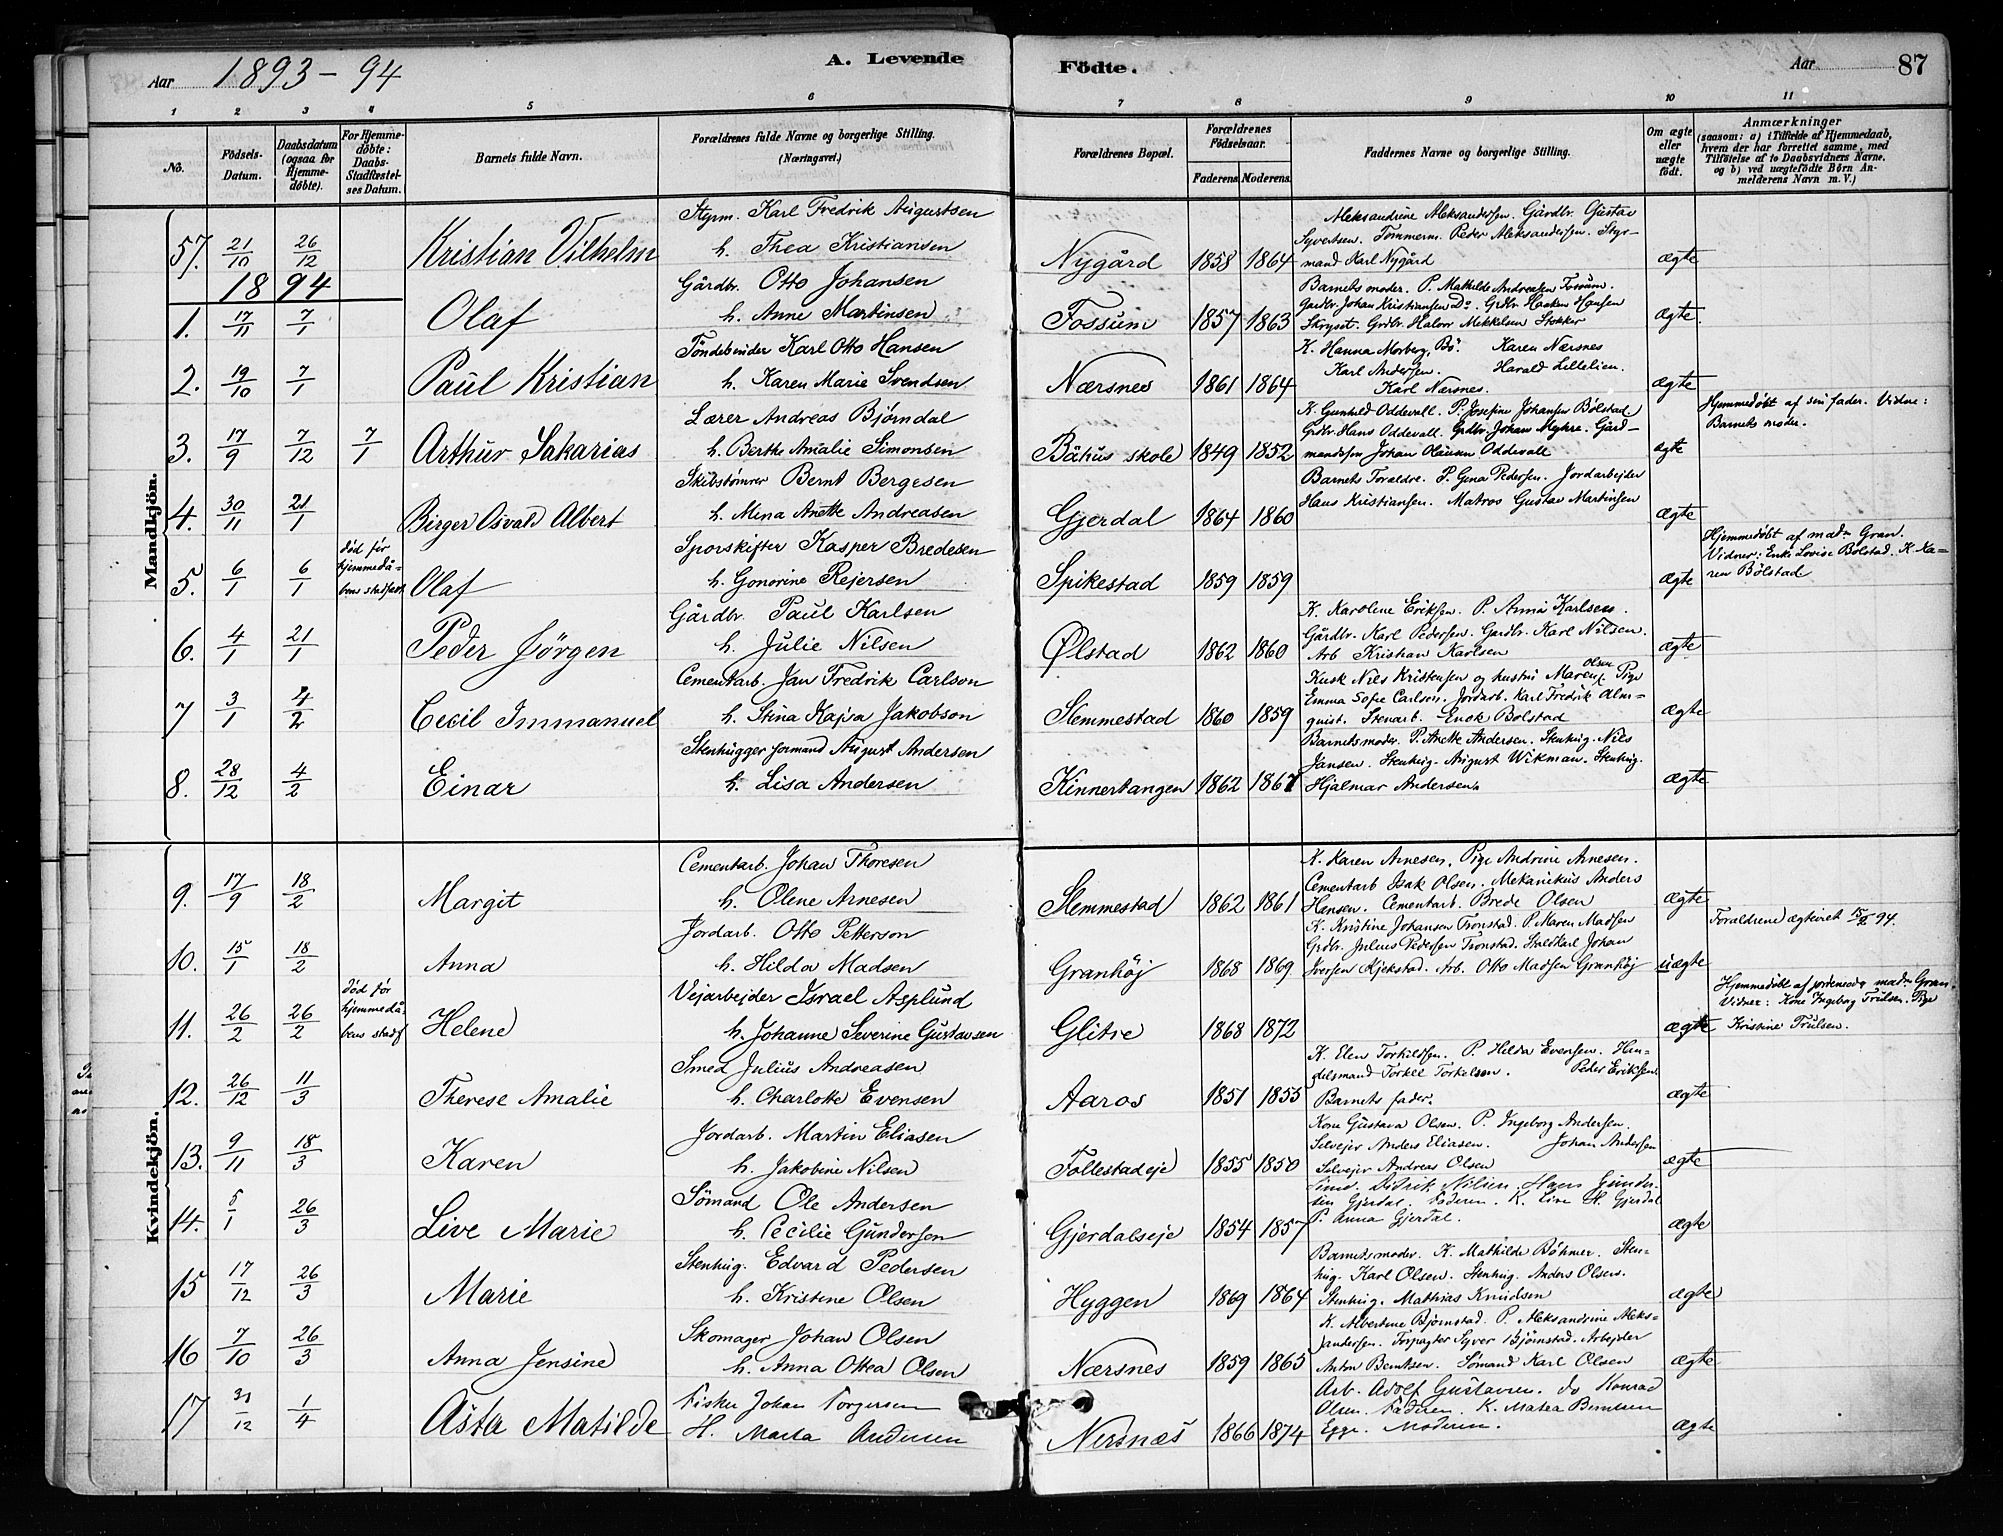 Aar 1893-94 A. Levende Födte. Aar 87
1 2 3 4 5 6 7 8 9 10 11
No. Födsels-Datum. Daabsdatum (ogsaa for Hjemme-döbte). For Hjemme-döbte: Daabs-Stadfæstel-ses Datum. Barnets fulde Navn. Forældrenes fulde Navne og borgerlige Stilling. (Næringsvei.) Forældrenes Bopæl. Forældrenes Födselsaar. Faderens. Moderens. Faddernes Navne og borgerlige Stilling. Om ægte eller uægte födt. Anmærkninger (saasom: a) i Tilfælde af Hjemmedaab, hvem der har forrettet samme, med Tilföielse af to Daabsvidners Navne, og b) ved uægtefödte Börn An-melderens Navn m. V.)
Mandkjön.
57. 21/10 26/12 Kristian Vilhelm Styrm. Karl Fredrik Augustsen
h. Thea Kristiansen Nygård 1858 1864 Aleksandrine Aleksandersen. Gårdbr. Gustav
Syvertsen. Tømmerm. Peder Aleksandersen. Styr-
mand Karl Nygård ægte
1894
1. 17/11 7/1 Olaf Gårdbr. Otto Johansen
h. Anne Martinsen Fossum 1857 1863 Barnets moder. P. Mathilde Andreasen Fossum.
Gardbr. Johan Kristiansen Do. Grdbr. Haaken Hansen
Skryset. Grdbr. Halvor Mikkelsen Stokker ægte.
2. 19/10 7/1 Paul Kristian Tøndebinder Karl Otto Hansen
h. Karen Marie Svendsen Nærsnes 1861 1864 K. Hanna Morberg, Bö. Karen Nærsnes
Karl Andersen. Harald Lillelien.
Karl Nærsnes. ægte
3. 17/9 7/12 7/1 Arthur Sakarias Lærer Andreas Bjørndal
h. Berthe Amalie Simonsen Båhus skole 1849 1852 K. Gunhild Oddevall. P. Josefine Johansen Bölstad.
Grdbr. Hans Oddevall. Grdbr. Johan Myhre. Gård-
mandssøn Johan Olausen Oddevall ægte Hjemmedøbt af sin fader. Vidne:
Barnets moder.
4. 30/11 21/1 Birger Osvald Albert Skibstømrer Bernt Bergesen
h. Mina Anette Andreasen Gjerdal 1864 1860 Barnets Foraldre. P. Gina Pedersen. Jordarbejder
Hans Kristiansen. Matros Gustav Martinsen ægte
5. 6/1 6/1 død før
hjemmedå-
bens stadfæst. Olaf Sporskifter Kasper Bredesen
h. Gonorine Rejersen Spikestad 1859 1859 ægte Hjemmedøbt af madm Gran.
Vidner: Enke Lovise Bolstad. K. Ka-
ren Bölstad
6. 4/1 21/1 Peder Jörgen Gårdbr. Paul Karlsen
h. Julie Nilsen Ølstad 1862 1860 K. Karoline Eriksen. P. Anna Karlsen.
Gårdbr. Karl Pedersen. Gardbr. Karl Nilsen.
Arb Kristian Karlsen ægte
7 3/1 4/2 Cecil Immanuel Cementarb. Jan Fredrik Carlson
h. Stina Kajsa Jakobson Slemmestad 1860 1859 Kusk Nils Kristensen og hustru Maren Olsen. Pige
Emma Sofie Carlsen. Jordarb. Karl Fredrik Alm-
quist. Stenarb. Enok Bolstad ægte
8. 28/12 4/2 Einar Stenhugger formand August Andersen
h. Lisa Andersen Kinnertangen 1862 1867 Barnets moder. P. Anette Andersen. Stenhug. Nils
Jansen. Stenhug. August Wikman. Stenhug.
Hjalmar Andersen. ægte
Kvindekjön.
9. 17/9 18/2 Margit Cementarb. Johan Thoresen
h. Olene Arnesen Slemmestad 1862 1861 K. Karen Arnesen. Pige Andrine Arnesen.
Cementarb Isak Olsen. Mekanikus Anders
Hansen. Cementarb. Brede Olsen ægte
10. 15/1 18/2 Anna Jordarb. Otto Petterson
h. Hilda Madsen Granhöj 1868 1869 K. Kristine Johansen Tronstad. P. Maren Madsen
Grdbr. Julius Pedersen Tronstad. Staldkarl Johan
Iversen Kjekstad. Arb. Otto Madsen Granhöj uægte Foraldrene ægteviet 94.
11. 26/2 26/2 død før
hjemmedå-
bens stadf Helene Vejarbejder Israel Asplund
h. Johanne Severine Gustavsen Glitre 1868 1872 ægte Hjemmedøbt af jordemoder madm Gran.
Vidner: Kone Ingeborg Trulsen. Pige
Kristine Trulsen.
12. 26/12 11/3 Therese Amalie Smed Julius Andreasen
h. Charlotte Evensen Aaros 1851 1855 K. Elen Torkildsen. P. Hilda Evensen. Han-
delsmand Torkel Torkelsen. Peder Eriksen.
Barnets fader. ægte
13. 9/11 18/3 Karen Jordarb. Martin Eliasen
h. Jakobine Nilsen Follestadeje 1855 1850 Kone Gustava Olsen. P. Ingeborg Andersen.
Selvejer Anders Eliasen. Johan Andersen
Selvejer Andreas Olsen ægte
14. 5/1 26/3 Live Marie Sömand Ole Andersen
h. Cecilie Gundersen Gjerdalseje 1854 1857 Didrik Nilsen. Hans Gunder-
sen Gjerdal. Faderen. K. Live H. Gjerdal
P. Anna Gjerdal. ægte
15 17/12 26/3 Marie Stenhug. Edvard Pedersen
h. Kristine Olsen Hyggen 1869 1864 Barnets moder. K. Mathilde Böhmer. Sten-
hug. Karl Olsen. Stenhug. Anders Olsen.
Stenhug. Mathias Knudsen ægte
16 7/10 26/3 Anna Jensine Skomager Johan Olsen
h. Anna Ottea Olsen Nærsnes 1859 1865 K. Albertine Bjørnstad. P. Aleksandrine Aleks-
andersen. Forpagter Syver Bjørnstad. Arbejder
Anton Berntsen. Sömand Karl Olsen ægte
17 31/12 1/4 Asta Matilde Fisker Johan Torgersen
H. Marta Andersen Nersnæs 1866 1874 Arb. Adolf Gustavsen. do Konrad
Olsen. Faderen. K. Matea Berntsen
Egge. Moderen. ægte